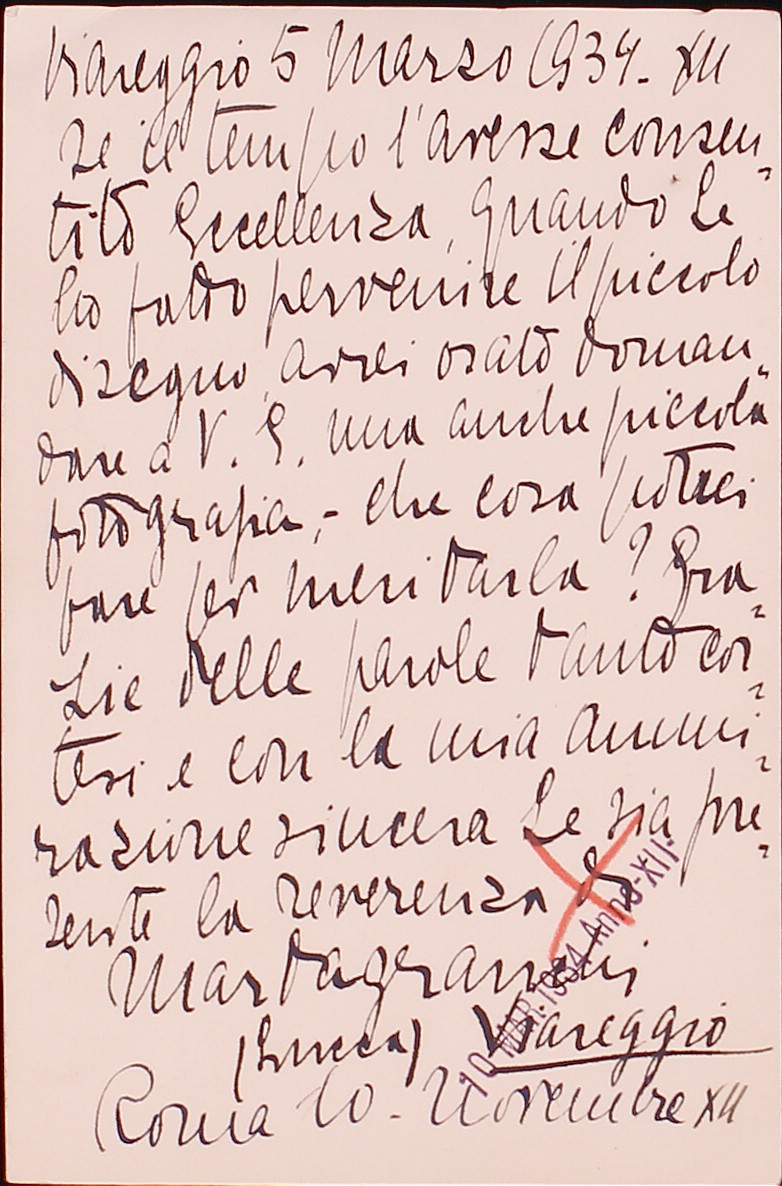 Viareggio 5 Marzo 1934 - XII
Se il tempo l'avesse consen-
tito Eccellenza, quando Le
ho fatto pervenire il piccolo
disegno, avrei osato doman-
dare a V. E. una anche piccola
fotografia, - che cosa potrei
fare per meritarla? Gra-
zie delle parole tanto cor-
tesi e con la mia ammi-
razione sincera Le sia pre-
sente la reverenza di
Marta
(Lucca) Viareggio
10 MAR. 1934 Anno XII
Roma 10 - Novembre XII